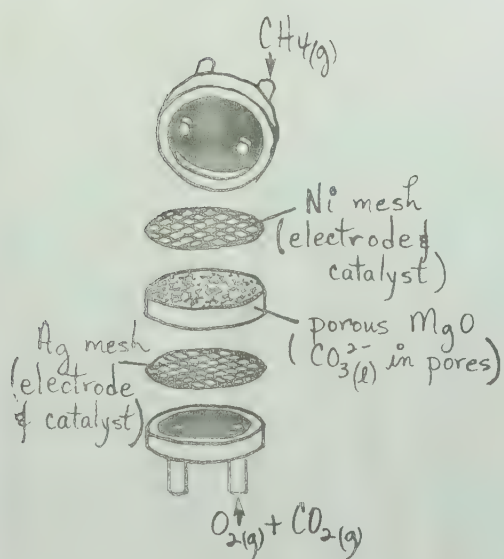 CH4(g)
Ni mesh
(electrode &
catalyst)
porous MgO
(CO3^2-(l) in pores)
Ag mesh
(electrode
& catalyst)
O2(g) + CO2(g)